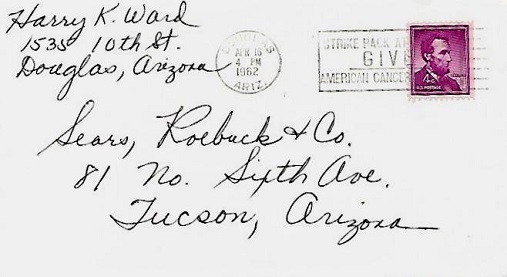 Harry K. Ward
1535 10th St.
Douglas, Arizona
DOUGLAS
APR 16
4 PM
1962
ARIZ.
STRIKE BACK
GIVE
AMERICAN CANCER
4¢
U.S. POSTAGE
Sears, Roebuck & Co.
81 No. Sixth Ave.
Tucson, Arizona